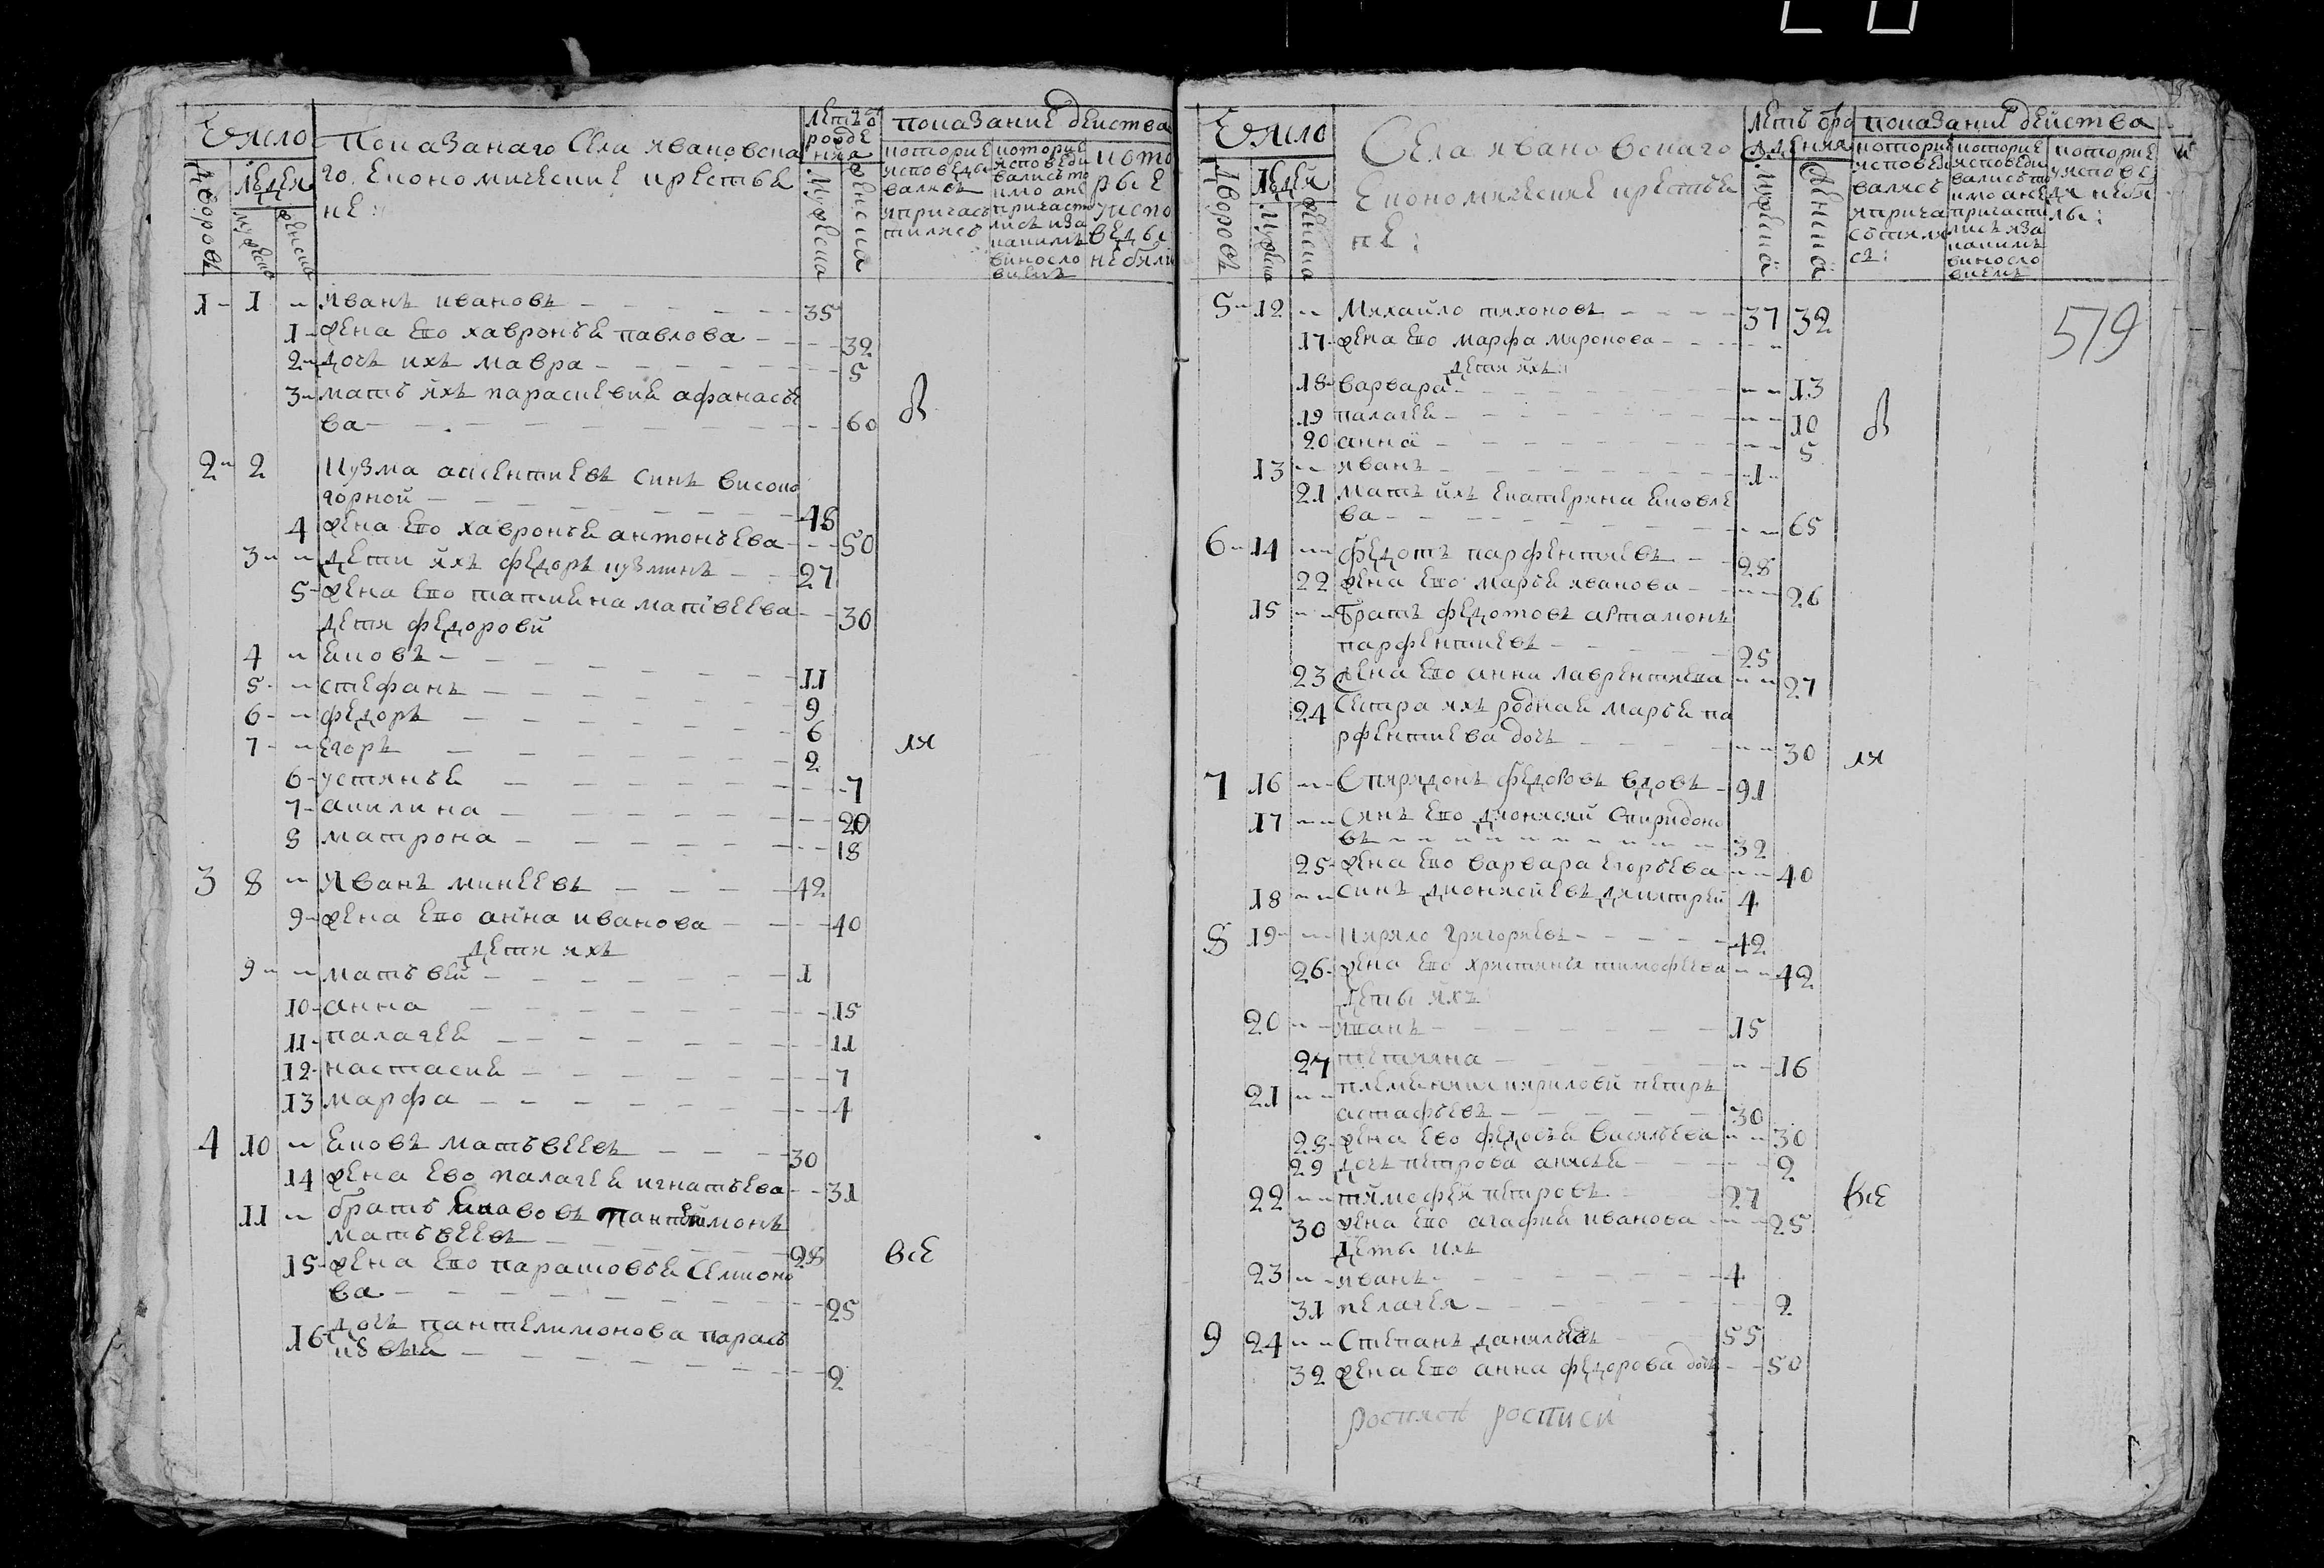 Число
Показанаго Села явановска
го економические крестья
не:
летъ о
рожде
ния
показание действа
дворовъ
людей
мужеска
женска
мужеска
женска
которие
исповеды
вались
ипричас
тились
которие
исповеди
вались то
кмо а не
причасти
лись и за
какимъ
виносло
виемъ
кото
рые
уиспо
веды
небили
1 1 Иванъ ивановъ 35
1 жена ево хавронья павлова 32
2 дочь ихъ мавра 5
3 мать ихъ параскевия афанасье
ва 60
в
2 2 Кузма аксентиевъ синъ високо
горной 48
4 жена ево хавронья антоньева 50
3 дети ихъ федоръ кузминъ 27
5 жена ево татияна матвеева 30
детя федорови
4 яковъ 11
5 стефанъ 9
6 федоръ 6
7 егоръ 2
ли
6 устинья 7
7 акилина 20
8 матрона 18
3 8 Иванъ минеевъ 42
9 жена ево анна иванова 40
детя ихъ
9 матьвей 1
10 анна 15
11 палагея 11
12 настасия 7
13 марфа 4
4 10 яковъ матьвеевъ 30
14 жена ево палагея игнатьева 31
11 братъ яковавъ пантелимонъ
матьвеевъ 28
все
15 жена ево парашовья Семионо
ва 25
16 дочь пантелимонова парась
ковья 2
Число
Села явановскаго
економические крестья
не:
летъ оро
ждения
показание действа
дворовъ
людей
мужеска
женска
мужеска
женска
которие
исповеди
вались
иприча
стили
сь:
которие
исповеди
вались то
кмо а не
причасти
лись иза
какимъ
виносло
виемъ
которие
уиспове
ди неби
ли:
519
5 12 Михайло тихоновъ 37 32
17 жена ево марфа миронова
детя ихъ:
18 варвара 13
19 палагея 10
в
20 анна 5
13 иванъ 1
21 мать ихъ екатерина яковле
ва 65
6 14 федотъ парфентиевъ 28
22 жена ево марья иванова 26
15 братъ федотовъ артамонъ
парфентиевъ 25
23 жена ево анна лаврентиева 27
24 Сестра ихъ родная марья па
рфентиева дочь 30
ли
7 16 Спиридонъ федоровъ вдовъ 91
17 Синъ ево дионисий Спиридоно
въ 32
25 жена ево варвара егорьева 40
18 синъ дионисиевъ димитрей 4
8 19 Кирило григориевъ 42
26 жена ево християнья тимофеева 42
деты ихъ
20 иванъ 15
27 татияна 16
21 племянникъ кирилови петръ
астафьевъ 30
28 жена ево федосья василиева 30
29 дочь петрова анисья 2
22 тимофей петровъ 27
все
30 жена ево агафия иванова 25
деты ихъ
23 иванъ 4
31 пелагея 2
9 24 Степанъ данилевъ 55
32 жена ево анна федорова дочь 50
роспись росписи